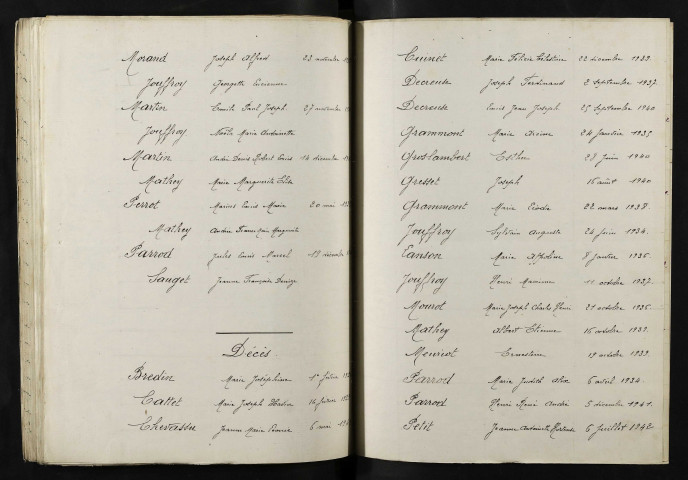 Morand Joseph Alfred 23 novembre
Jouffroy Georgette
Martin Emile Paul Joseph 27 novembre
Jouffroy Marie Antoinette
Martin André Denis Robert Louis 14 décembre
Mathey Marie Marguerite
Perrot Marius Louis Marie 20 mai
Mathey Andrée Françoise Marguerite
Parrod Jules Louis Marcel 19 décembre
Sauget Jeanne Françoise Denise
Décès
Bredin Marie Joséphine 1er février
Cattet Marie Joseph 16 février
Chevassu Jeanne Marie 6 mai
Cuinet Marie Félicie Célestine 22 décembre 1933
Decreuse Joseph Ferdinand 2 septembre 1937
Decreuse Louis Jean Joseph 25 septembre 1940
Grammont Marie 24 janvier 1935
Groslambert Esther 28 juin 1940
Gresset Joseph 16 août 1940
Grammont Marie 22 mars 1938
Jouffroy Sylvain Auguste 24 juin 1934
Marie 8 janvier 1936
Jouffroy Henri 11 octobre 1937
Mourot Marie Joseph Charles Henri 21 octobre 1935
Mathey Albert Etienne 16 octobre 1933
Meuriot Ernestine 19 octobre 1933
Parrod Marie Judith 6 avril 1934
Parrod Henri René André 5 décembre 1941
Petit Jeanne Antoinette Hortense 6 juillet 1942